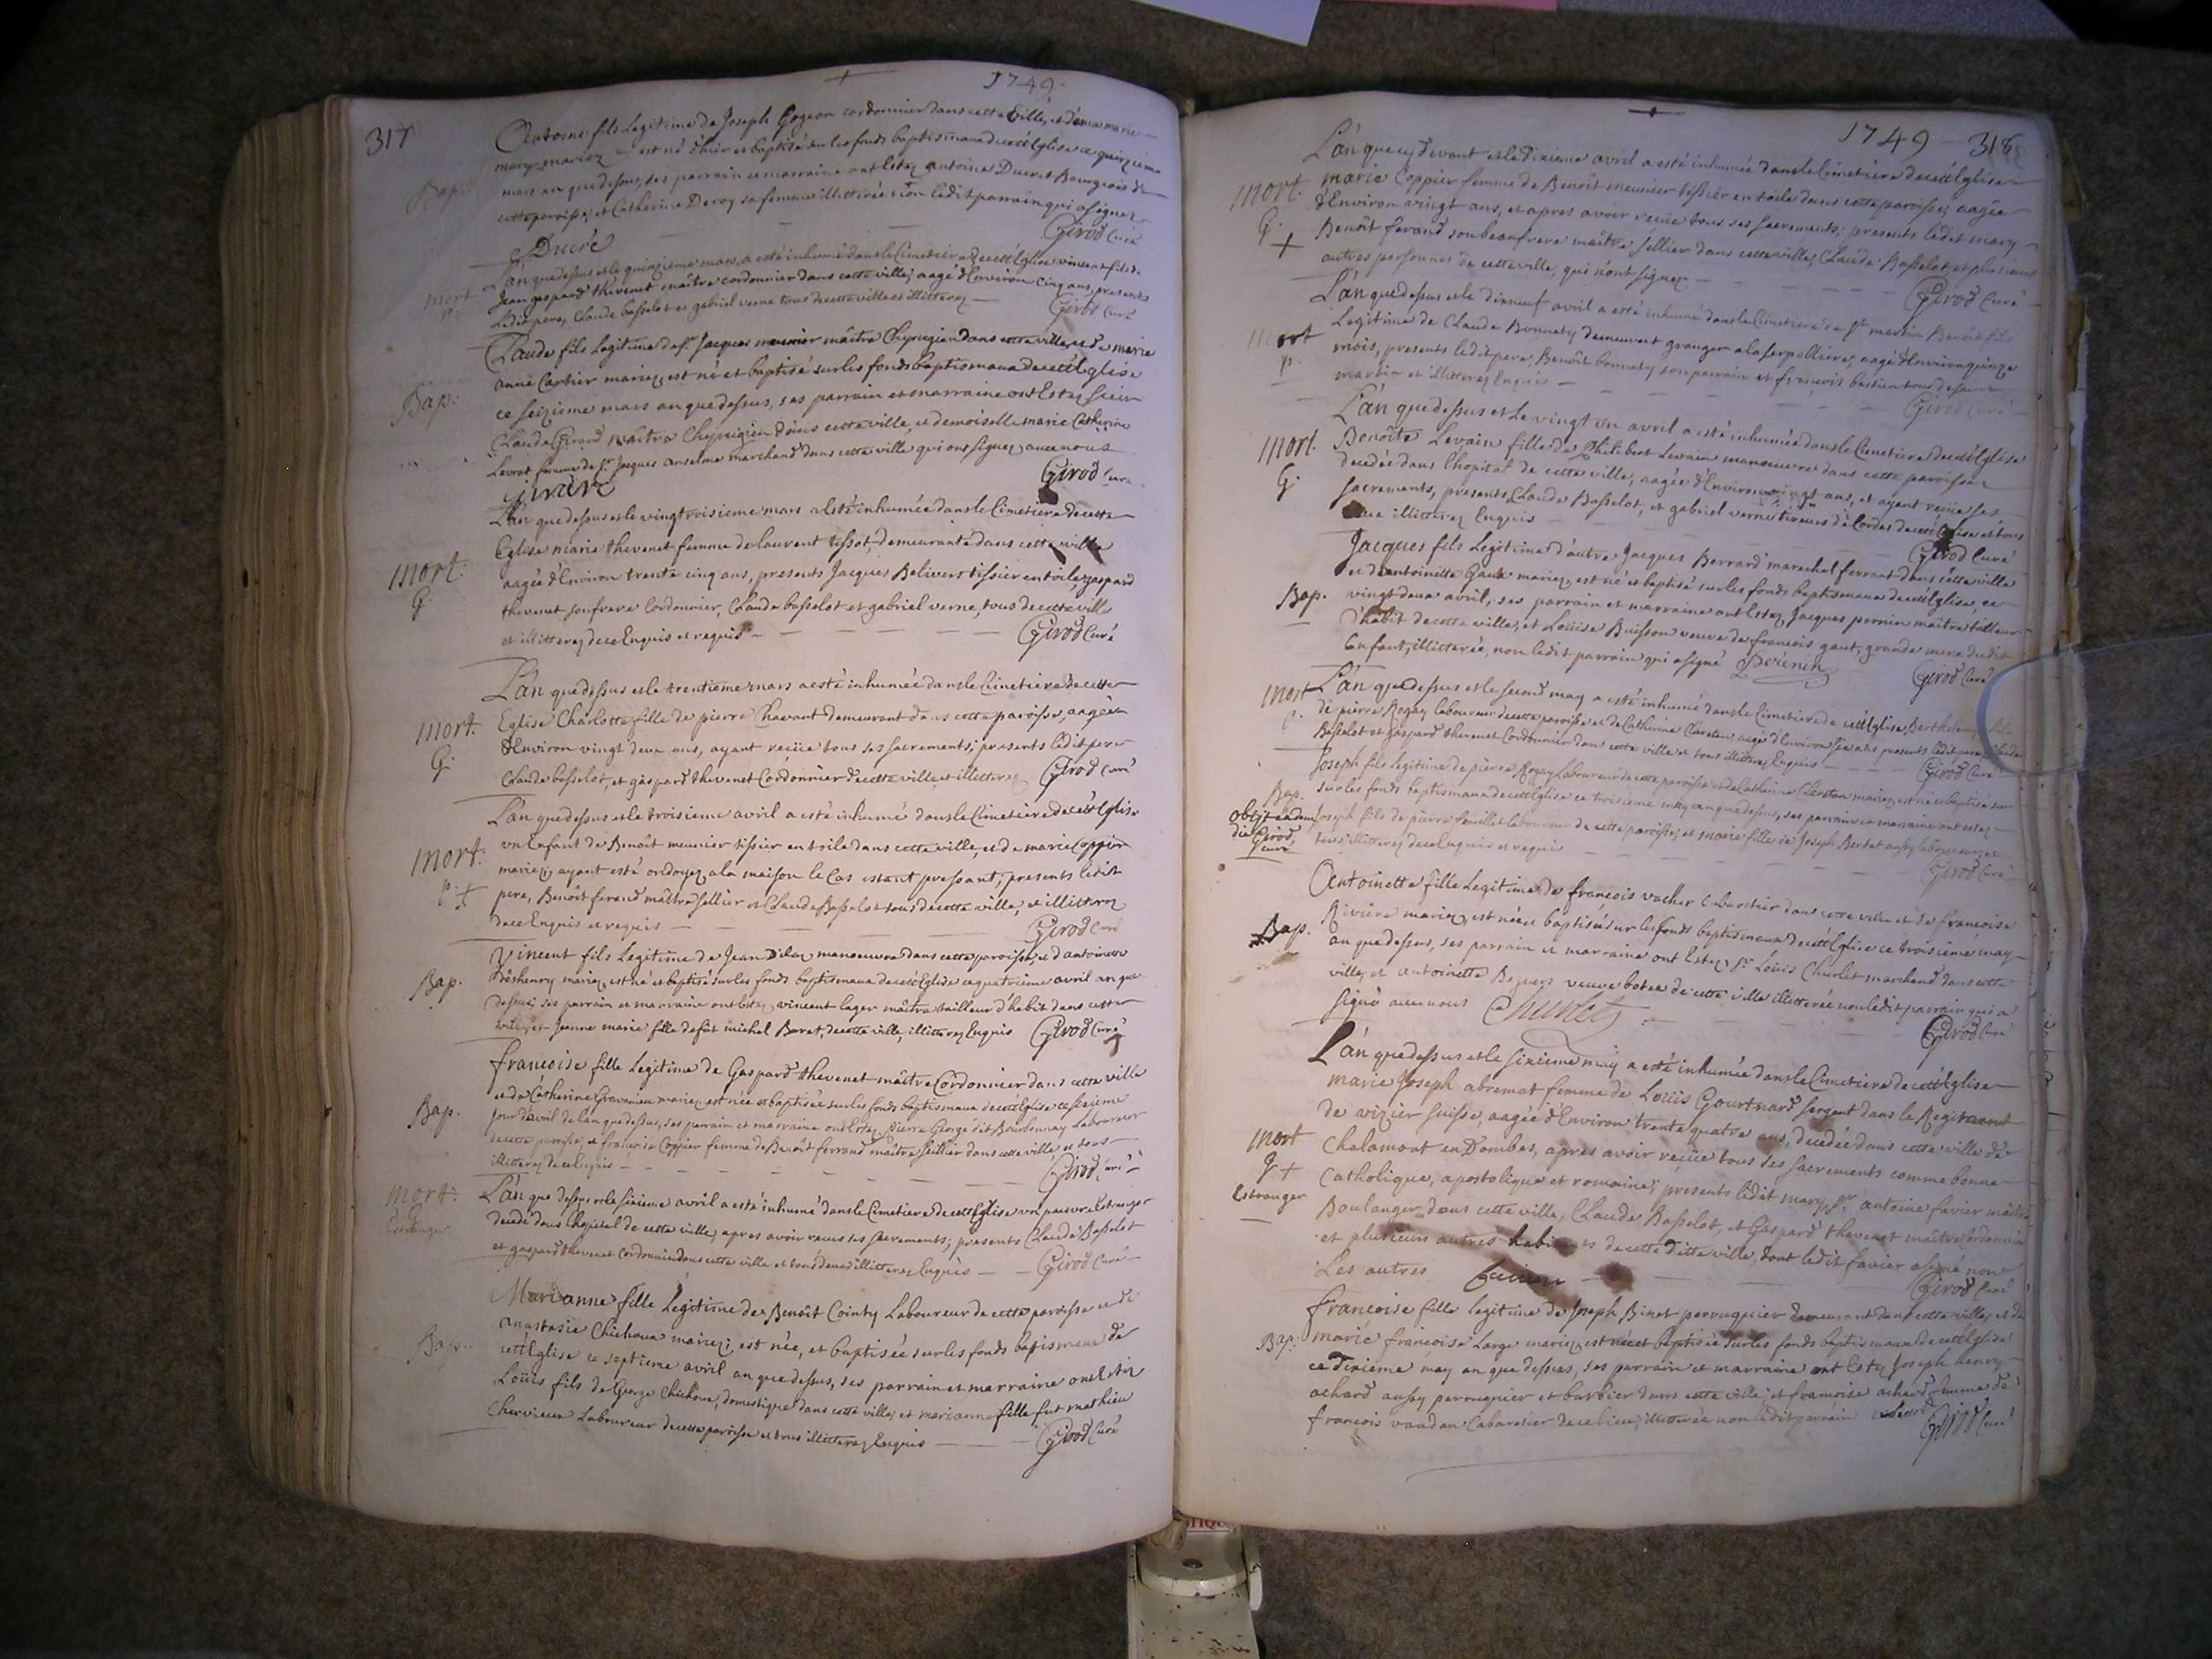 1749
317
Antoine fils Legitime de Joseph cordonnier dans cette ville, et marie
mariez est né d'hier et baptisé sur les fonds baptismaux de cett Eglise ce quinzieme
mars an que dessus, ses parrain et marraine ont Estez antoine Ducret Bourgeois de
cette paroisse, et Catherine Deroy sa femme illitterée non ledit parrain qui a signez
Bap.
Girod Curé
Ducré
L'an que dessus et le quinzieme mars, a esté inhumé dans le Cimetiere de cett Eglise vincent fils de
Jean gaspard thevenet maître cordonnier dans cette ville, aagé d'Environ cinq ans, presents
Ledit pere, Claude basselot et gabriel verne tous de cette ville et illitterez
Girod Curé
mort
p.
Claude fils Legitime de Sr Jacques meunier maître Chyrugien dans cette ville, et de marie
anne Cartier mariez, est né et baptisé sur les fonds baptismaux de cett Eglise
ce seizieme mars an que dessus, ses parrain et marraine ont Estez sieur
Claude Girard maître Chyrugien dans cette ville, et demoiselle marie Catherine
Levrat femme de Sr Jacques anselme marchand dans cette ville qui ont signez avec nous
Bap.
Girod Curé
L'an que dessus et le vingt troisieme mars a Esté inhumée dans le Cimetiere de cette
Eglise marie thevenet femme de laurent tissot demeurante dans cette ville
aagée d'Environ trente cinq ans, presents Jacques Belivert tissier en toile, gaspard
thevenet son frere Cordonnier, Claude basselot et gabriel verne, tous de cette ville
et illitterez de ce Enquis et requis
Girod Curé
mort.
G.
L'an que dessus et le trentieme mars a esté inhumée dans le Cimetiere de cette
Eglise Charlotte fille de pierre Chavant demeurant dans cette paroisse, aagée
d'Environ vingt deux ans, ayant reçüe tous ses sacrements; presents ledit pere
Claude basselot, et gaspard thevenet Cordonnier de cette ville et illitterez
Girod Curé
mort.
G.
L'an que dessus et le troisieme avril a esté inhumé dans le Cimetiere de cett Eglise
un Enfant de Benoît meunier tissier en toile dans cette ville, et de marie Coppier
mariez, ayant esté ondoyez a la maison le Cas estant pressant; presents ledit
pere, Benoît ferand maître sellier et Claude Basselot tous de cette ville, et illitterez
de ce Enquis et requis
Girod Curé
mort.
p. +
Vincent fils Legitime de Jean Dilas manoeuvre dans cette paroisse, et d'antoinette
mariez, est né et baptisé sur les fonds baptismaux de cett Eglise ce quatrieme avril an que
dessus; ses parrain et marraine ont Estez vincent lager maître tailleur d'habit dans cette
ville, et Jeanne marie fille de fût michel Baret, de cette ville, illitterez Enquis
Girod Curé
Bap.
francoise fille Legitime de Gaspard thevenet maître Cordonnier dans cette ville
et de Catherine mariez, est née et baptisée sur les fonds baptismaux de cett Eglise ce sixieme
jour d'avril de l'an que dessus, ses parrain et marraine ont Estez pierre George dit Bourbonnay Laboureur
de cette paroisse, et francoise Coppier femme de Benoît ferrand maître Sellier dans cette ville et tous
illitterez de ce Enquis
Girod Curé
Bap.
L'an que dessus et le sixieme avril a esté inhumé dans le Cimetiere de cett Eglise un pauvre Estranger
decedé dans l'hopital de cette ville, apres avoir receus ses sacrements; presents Claude Basselot
et gaspard thevenet Cordonnier dans cette ville et tous deux illitterez Enquis
Girod Curé
mort.
Estranger
Marianne fille Legitime de Benoît Cointy Laboureur de cette paroisse et de
anastasie Chichoux mariez, est née, et baptisée sur les fonds baptismaux de
cett Eglise ce septieme avril an que dessus, ses parrain et marraine ont Estez
Loüis fils de George Chichoux, domestique dans cette ville, et marianne fille fut mathieu
Chervieux Laboureur de cette paroisse et tous illitterez Enquis
Girod Curé
Bap.
1749
318
L'an que cy devant et le dixieme avril a esté inhumée dans le Cimetiere de cett Eglise
marie Coppier femme de Benoît meunier tissier en toile dans cette paroisse, aagée
d'Environ vingt ans, et apres avoir reçüe tous ses sacrements; presents ledit mary
Benoît ferand son beaufrere maître sellier dans cette ville, Claude Basselot, et plusieurs
autres personnes de cette ville, qui n'ont signez
Girod Curé
mort.
G.
+
L'an que dessus et le dixneuf avril a esté inhumé dans le Cimetiere de St martin Benoît fils
Legitime de Claude Bonnaty demeurant granger a la serpolliere, aagé d'Environ quinze
mois, presents ledit pere, Benoît bonnaty son parrain et françois bastien tous de saint
martin et illitterez Enquis
Girod Curé
mort
p.
L'an que dessus et le vingt un avril a esté inhumée dans le Cimetiere de cett Eglise
Benoîte Levain fille de Philibert Levain manoeuvre dans cette paroisse
decedée dans l'hopital de cette ville, aagée d'Environ vingt ans, et ayant reçüe ses
sacrements, presents, Claude Basselot, et gabriel verne tireurs de Cordes de cett Eglise et tous
deux illitterez Enquis
Girod Curé
mort.
G.
Jacques fils Legitime d'autre Jacques Berrard marechal ferrant dans cette ville
et d'antoinette Gaut mariez, est né et baptisé sur les fonds baptismaux de cett Eglise, ce
vingt deux avril, ses parrain et marraine ont Estez, Jacques pernin maître tailleur
d'habit de cette ville, et Loüise Buisson veuve de francois gaut, grande mere dudit
Enfant, illitterée, non ledit parrain qui a signé Perenin
Girod Curé
Bap.
L'an que dessus et le second may a esté inhumé dans le Cimetiere de cett Eglise Berthelemy fils
de pierre Rogay laboureur de cette paroisse et de Catherine aagé d'Environ six ans presents ledit pere, Claude
Basselot et gaspard thevenet Cordonnier dans cette ville et tous illitterez Enquis
Girod Curé
mort
p.
Joseph fils legitime de pierre Rogay Laboureur de cette paroisse et de Catherine mariez, est né et baptisé
sur les fonds baptismaux de cett Eglise ce troisieme may an que dessus, ses parrain et marraine ont estez
Joseph fils de pierre feuillet laboureur de cette paroisse, et marie fille de Joseph Berthet aussy laboureur, et
tous illitterez de ce Enquis et requis
Girod Curé
Bap.
obijt eadem
die Girod
curé
Antoinette fille Legitime de françois vacher Cabaretier dans cette ville et de francoise
Riviere mariez, est née et baptisée sur les fonds baptismaux de cett Eglise ce troisieme may
an que dessus, ses parrain et marraine ont Estez Sr Loüis Churlet marchand dans cette
ville, et antoinette veuve de cette ville illitterée non ledit parrain qui a
signé avec nous Churlet
Girod Curé
Bap.
L'an que dessus et le sixieme may a esté inhumée dans le Cimetiere de cett Eglise
marie Joseph abremat femme de Loüis Gourtnard sergent dans le Regiment
de vizier suisse, aagée d'Environ trente quatre ans, decedée dans cette ville de
Chalamont en Dombes, apres avoir reçüe tous ses sacrements comme bonne
Catholique, apostolique et romaine; presents ledit mary, Sr antoine favier maître
Boulanger dans cette ville, Claude Basselot, et Gaspard thevenet maître Cordonnier
et plusieurs autres habitants de cette ditte ville, dont ledit favier a signé non
Les autres
Girod Curé
mort
G +
Estranger
francoise fille legitime de Joseph Binet peruquier demeurant dans cette ville, et de
marie francoise Large mariez, est née et baptisée sur les fonds baptismaux de cett Eglise
ce dixieme may an que dessus, ses parrain et marraine ont Estez Joseph henry
achard aussy perruquier et barbier dans cette ville, et francoise achard femme de
françois vaudan Cabaretier de ce lieu, illitterée non ledit parrain
Girod Curé
Bap.